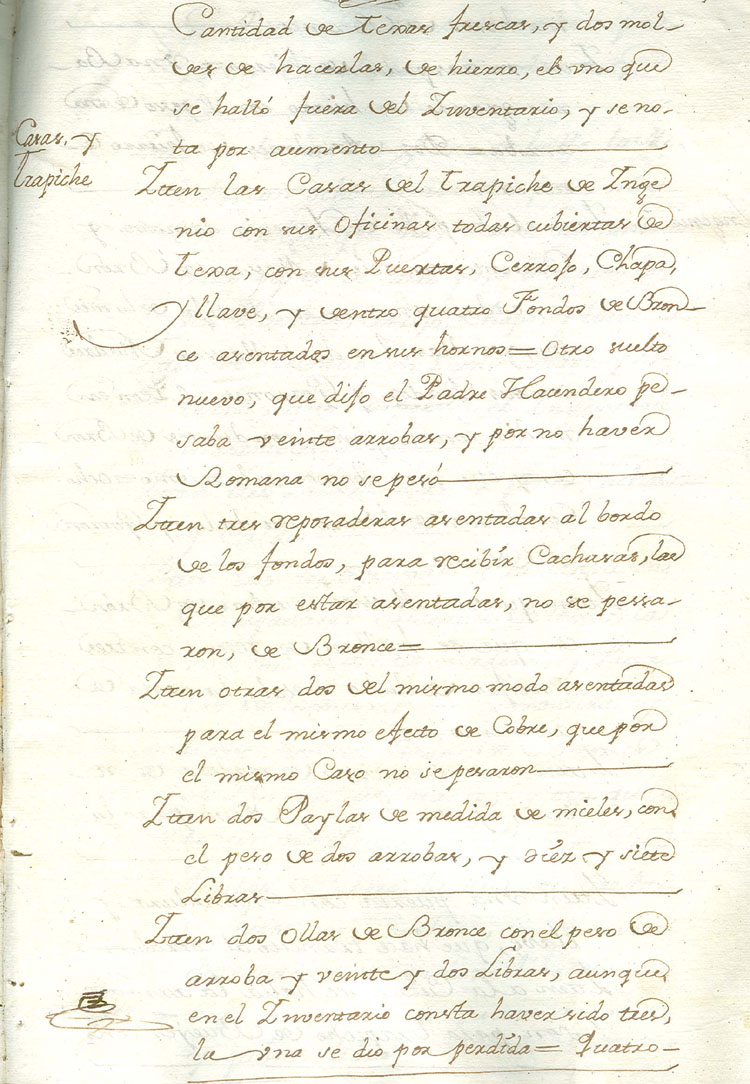 Cantidad de Texas frescas, y dos mol-
des de hacerlas, de hierro, el vno que
se halló fuera del Inventario, y se no-
ta por aumento
Casas, y
Trapiche
Itten las Casas del Trapiche de Inge
nio con sus Oficinas todas cubiertas de
Texa, con sus Puertas, Cerrojo, Chapa,
y llave, y dentro quatro Fondos de Bron-
ce asentados en sus hornos = Otro suelto
nuevo, que dijo el Padre Hacendero pe-
saba veinte arrobas, y por no haver
Romana no se pesó
Itten tres reposaderas asentadas al bordo
de los fondos, para recibir Cachasas, las
que por estar asentadas, no se pessa-
ron, de Bronce =
Itten otras dos del mismo modo asentadas
para el mismo efecto de Cobre, que por
el mismo Caso no se pesaron
Itten dos Paylas de medida de mieles, con
el peso de dos arrobas, y diéz y siete
Libras
Itten dos Ollas de Bronce con el peso de
arroba y veinte y dos Libras, aunque
en el Inventario consta haver sido tres,
la vna se dió por perdída = Quatro-